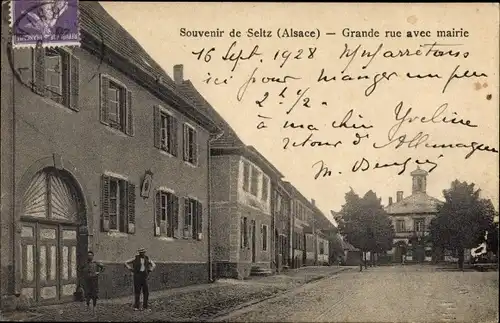 Souvenir de Seltz (Alsace) - Grande rue avec mairie
16 Sept. 1928 Nous arrêtons
ici pour manger un peu
2 h 1/2
à ma chin Yveline
retour d'Allemagne
M.